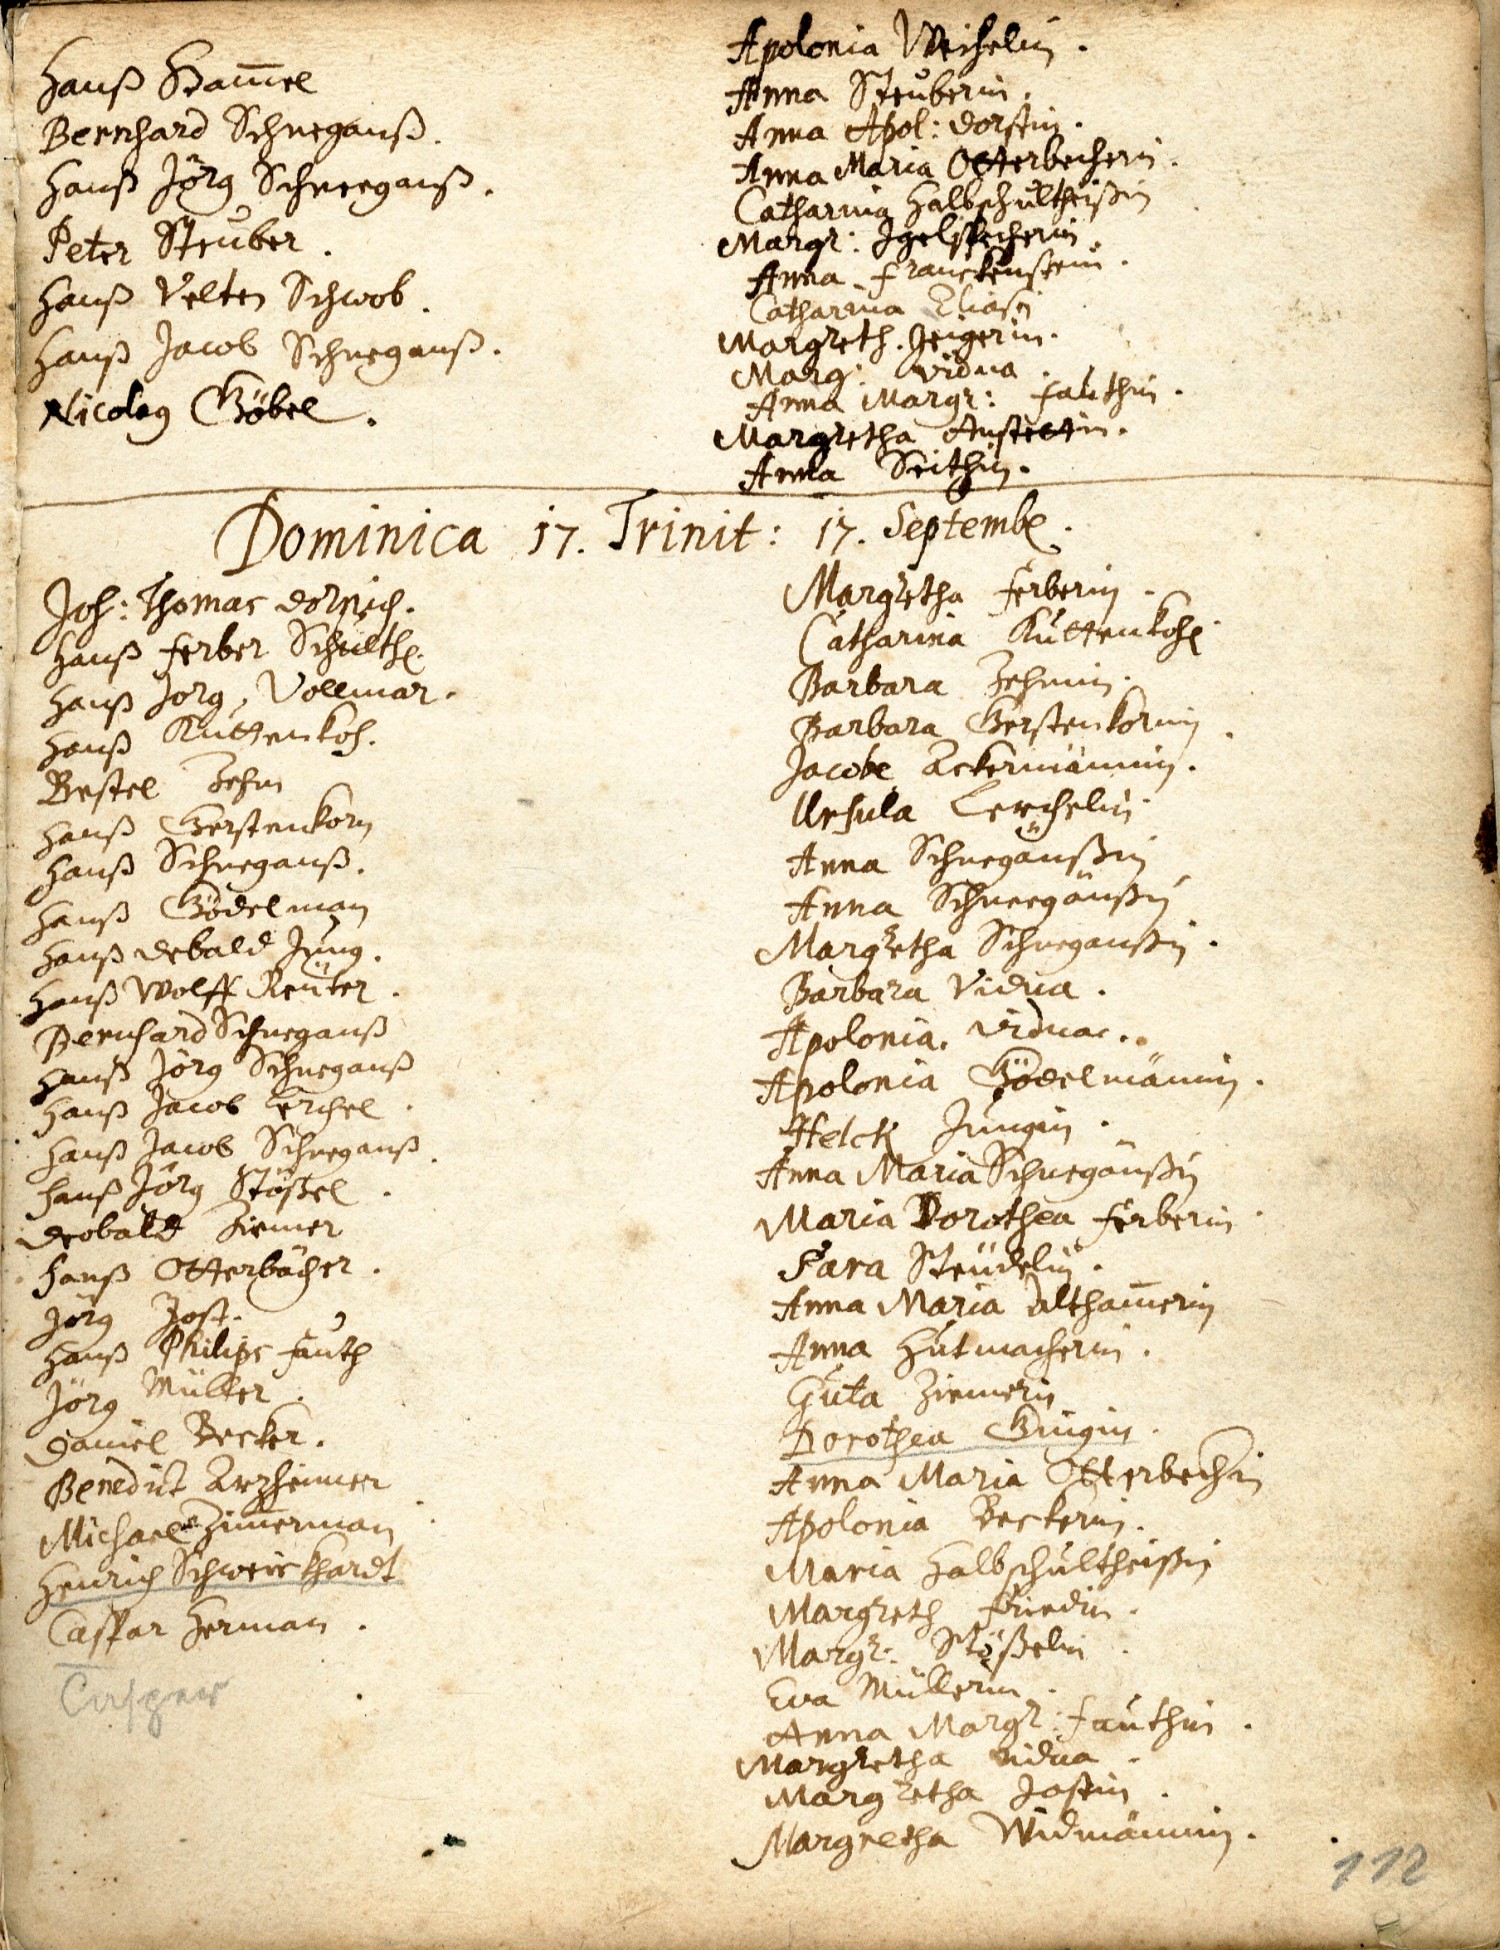 Hanß Ham̄el
Bernhard Schneeganß.
Hanß Jörg Schneeganß.
Peter Steuber.
Hanß Velten Schwob.
Hanß Jacob Schneganß.
Nicolag Göbel.
Apolonia
Anna Steuberin.
Anna Apol: Dorstin.
Anna Maria Otterbecherin.
Catharina Halbschultheißin
Margr: Igelspecherin
Anna Franckensteini.
Catharina Eliasin
Margreth. Geigerin.
Marg: Vidua.
Anna Margr: Fauthin.
Margretha Anstettin.
Anna Seithin.
Dominica 17. Trinit: 17. Septemb.
Joh: Thomas
Hanß Ferber Schulth.
Hanß Jorg, Vollmar.
Hanß Kuttenkoh.
Bestel Zehn
Hanß Gerstenkorn
Hanß Schneganß.
Hanß Gödelman
Hanß Debald Jung.
Hanß Wolff Reüter.
Bernhard Schneganß
Hanß Jörg Schneganß
Hanß Jacob Lerchel.
Hanß Jacob Schneganß.
Hanß Jörg Stößel.
Deobald Ziemer
Hanß Otterbächer.
Jörg Jost.
Hanß Philips Fauth
Jörg Müller.
Daniel Becker.
Benedict Arzheimer
Michael Zim̄erman
Henrich Schweickhardt
Caspar Herman.
Casper
Margretha Ferberin.
Catharina Kuttenkoh
Barbara Zehnin.
Barbara Gerstenkornin.
Jacobe Ackermännin.
Ursula Lerchelin
Anna Schneganßin
Anna Schneegänßin
Margretha Schneganßin.
Barbara Vidua.
Apolonia. Viduae.
Apolonia Gödelmännin.
Jungin.
Anna Maria Schnegänßin
Maria Dorothea Ferberin.
Sara Steüdelin.
Anna Maria Altham̄erin
Anna Hutmacherin.
Guta Ziemerin
Dorothea
Anna Maria Otterbechin
Apolonia Beckerin.
Maria Halbschultheißin
Margreth Friedin.
Margr: Stößelin.
Eva Müllerin.
Anna Margr: Fauthin.
Margretha Vidua.
Margretha Jostin.
Margretha Widmännin.
112